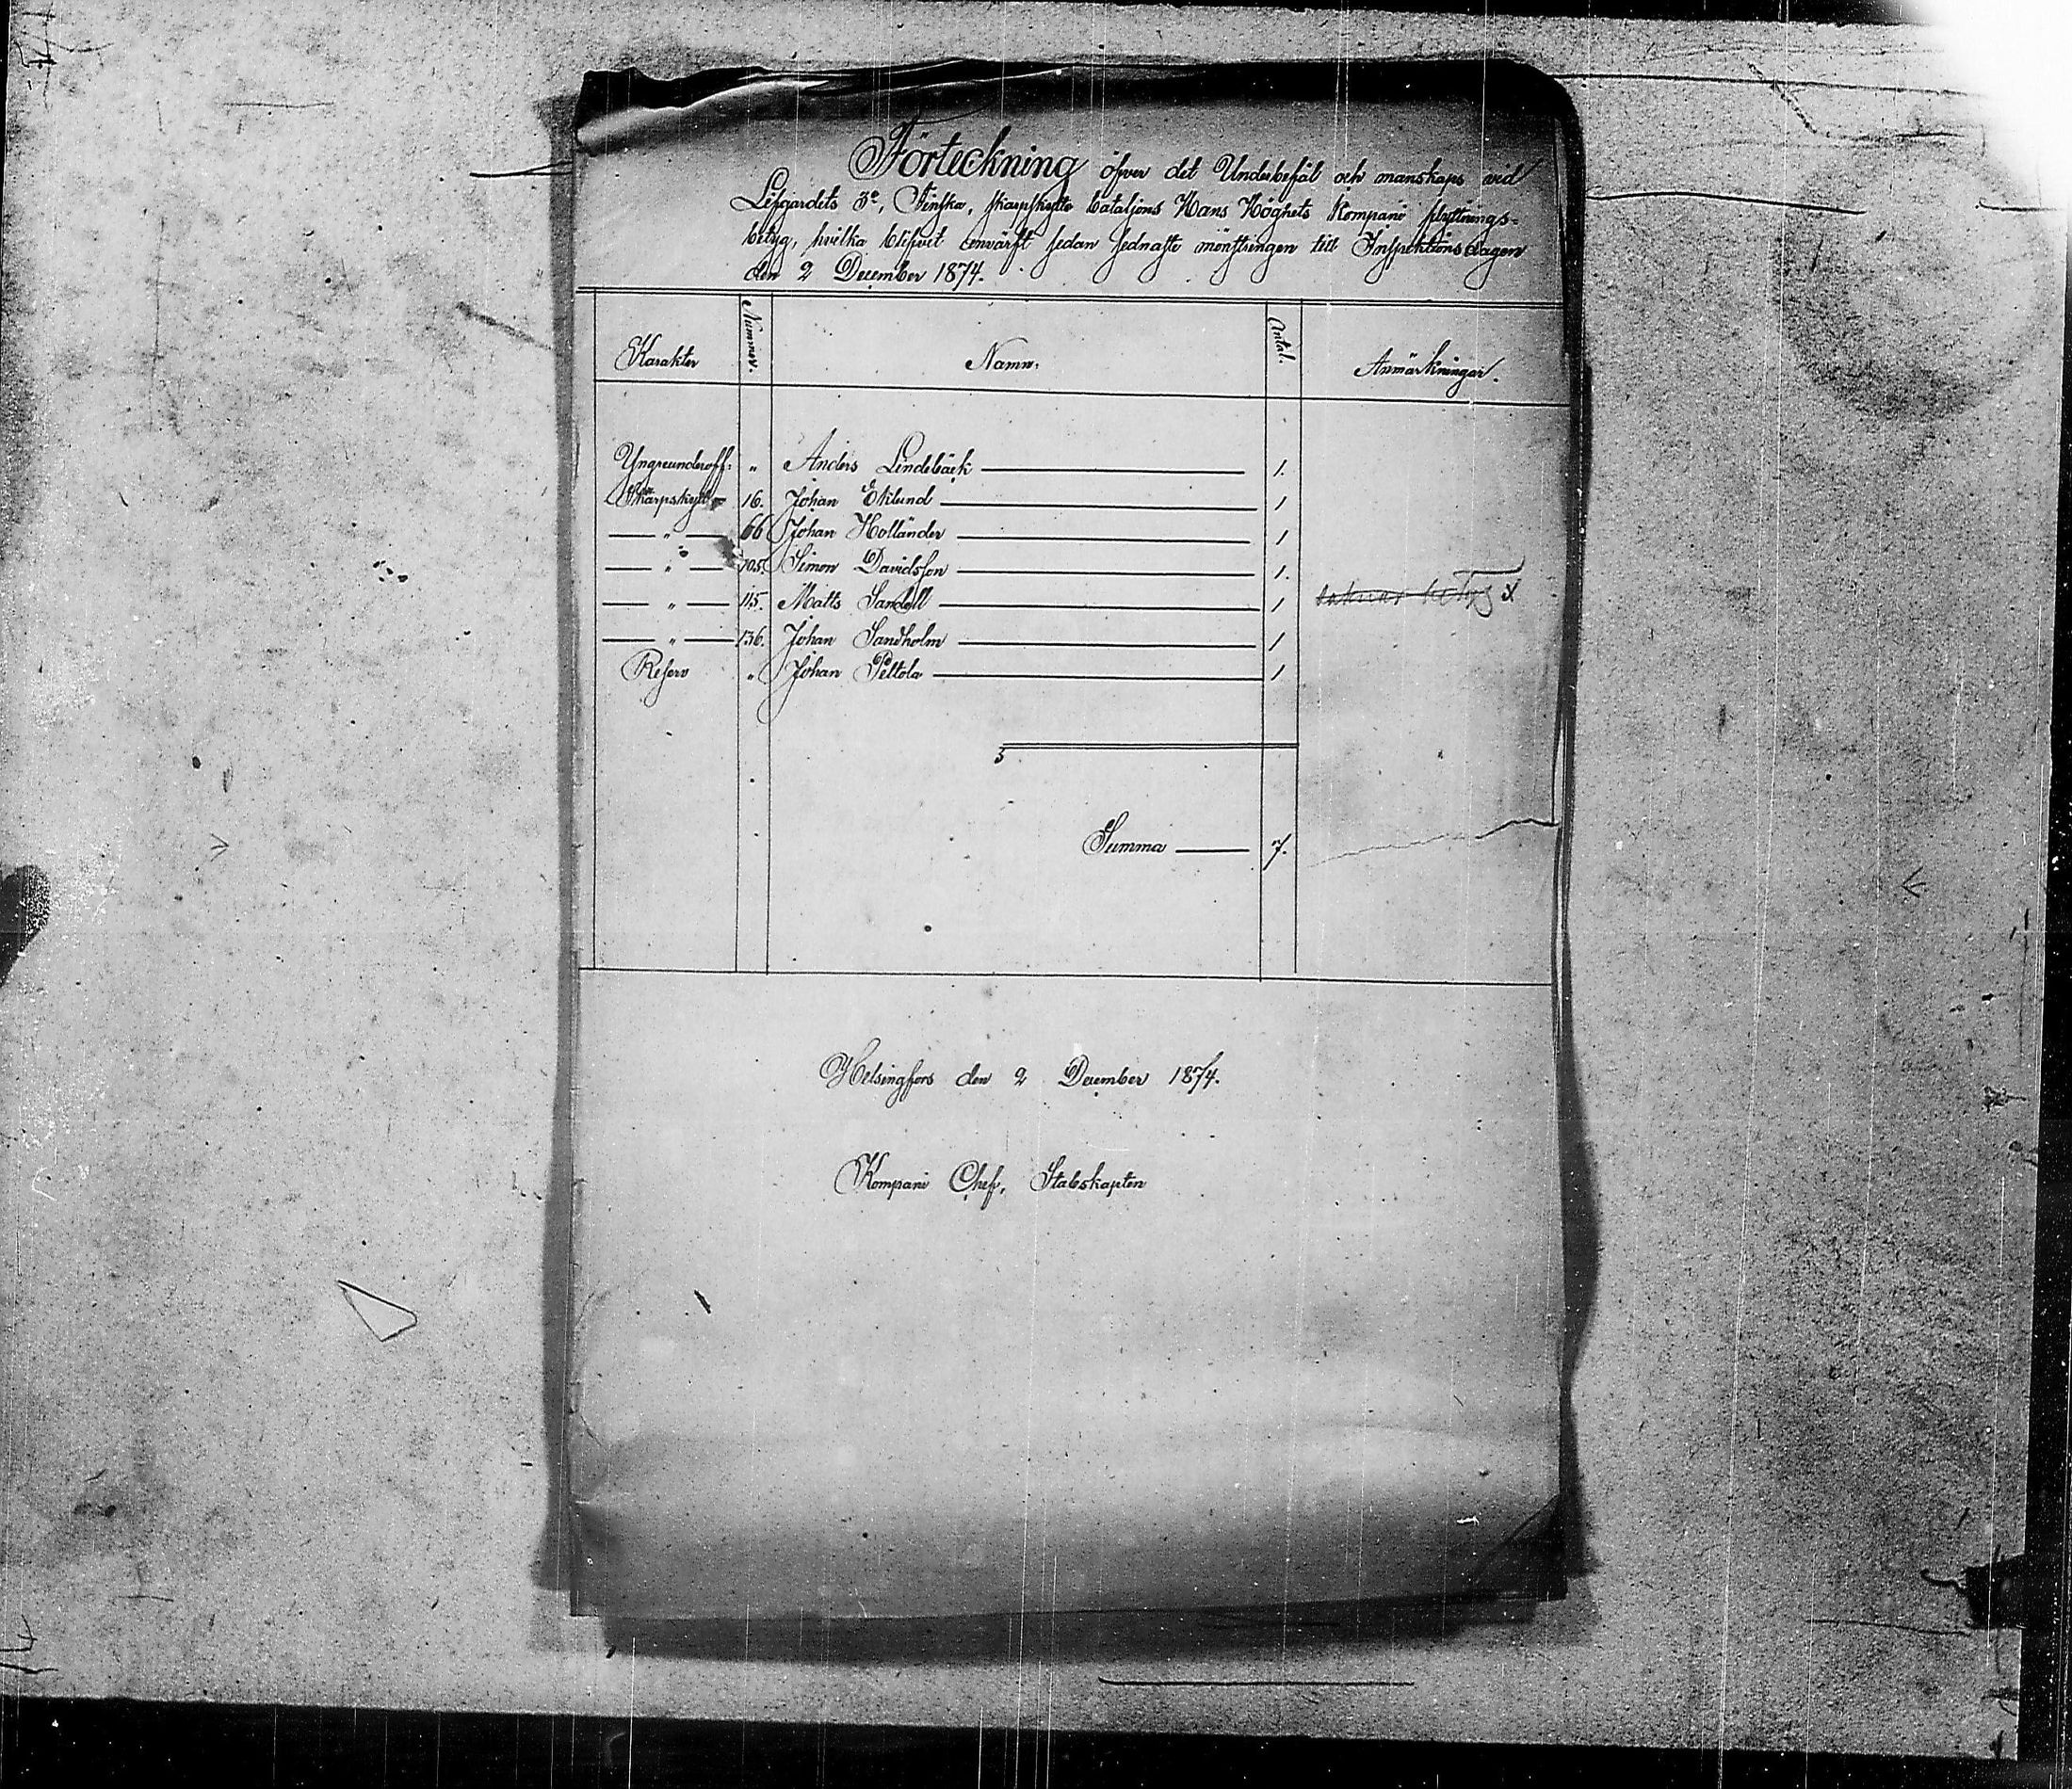 Förteckning öfver det Underbefäl och manskaps vid
Lifgardets 3e, Finska, skarpskytte bataljons Hans Höghets Kompani flyttnings-
betyg, hvilka blifvit envärft sedan sednaste mönstringen till Inspektionsdagen
den 2 December 1874.
Karakter Nummer. Namn. Antal. Anmärkningar.
Yngreunderoff: " Anders Lindebäck 1.
Skarpskytte 16. Johan Eklund 1
" 66 Johan Holländer 1
" 105. Simon Davidsson 1.
" 115. Matts Sandell 1 saknar betyg
" 136. Johan Sandholm 1
Reserv " Johan Peltola 1
Summa 7.
Helsingfors den 2 December 1874.
Kompani Chef, Stabskapten